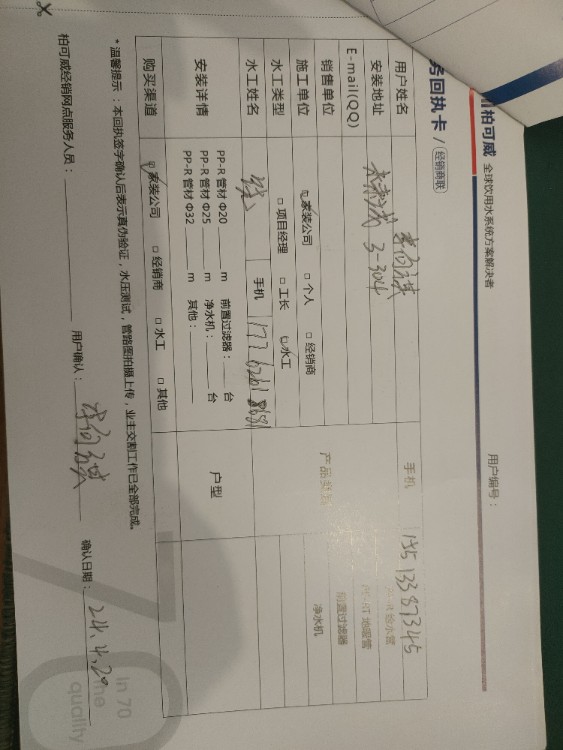 柏可威 全球饮用水系统方案解决者
务回执卡/经销商联
用户编号：
用户姓名
手机 195 1338 7345
安装地址 3-304
E-mail(QQ)
销售单位
产品类型
给水管
地暖管
前置过滤器
净水机
施工单位 家装公司 □ 个人 □ 经销商
水工类型 □ 项目经理 □ 工长 水工
水工姓名 手机
安装详情
PP-R 管材 Φ20 m 前置过滤器： 台
PP-R 管材 Φ25 m 净水机： 台
PP-R 管材 Φ32 m 其他：
户型
购买渠道 家装公司 □ 经销商 □ 水工 □ 其他
* 温馨提示：本回执签字确认后表示真伪验证，水压测试，管路图拍摄上传，业主交割工作已全部完成。
柏可威经销网点服务人员： 用户确认： 确认日期：24.4.20
in 70
me
quality